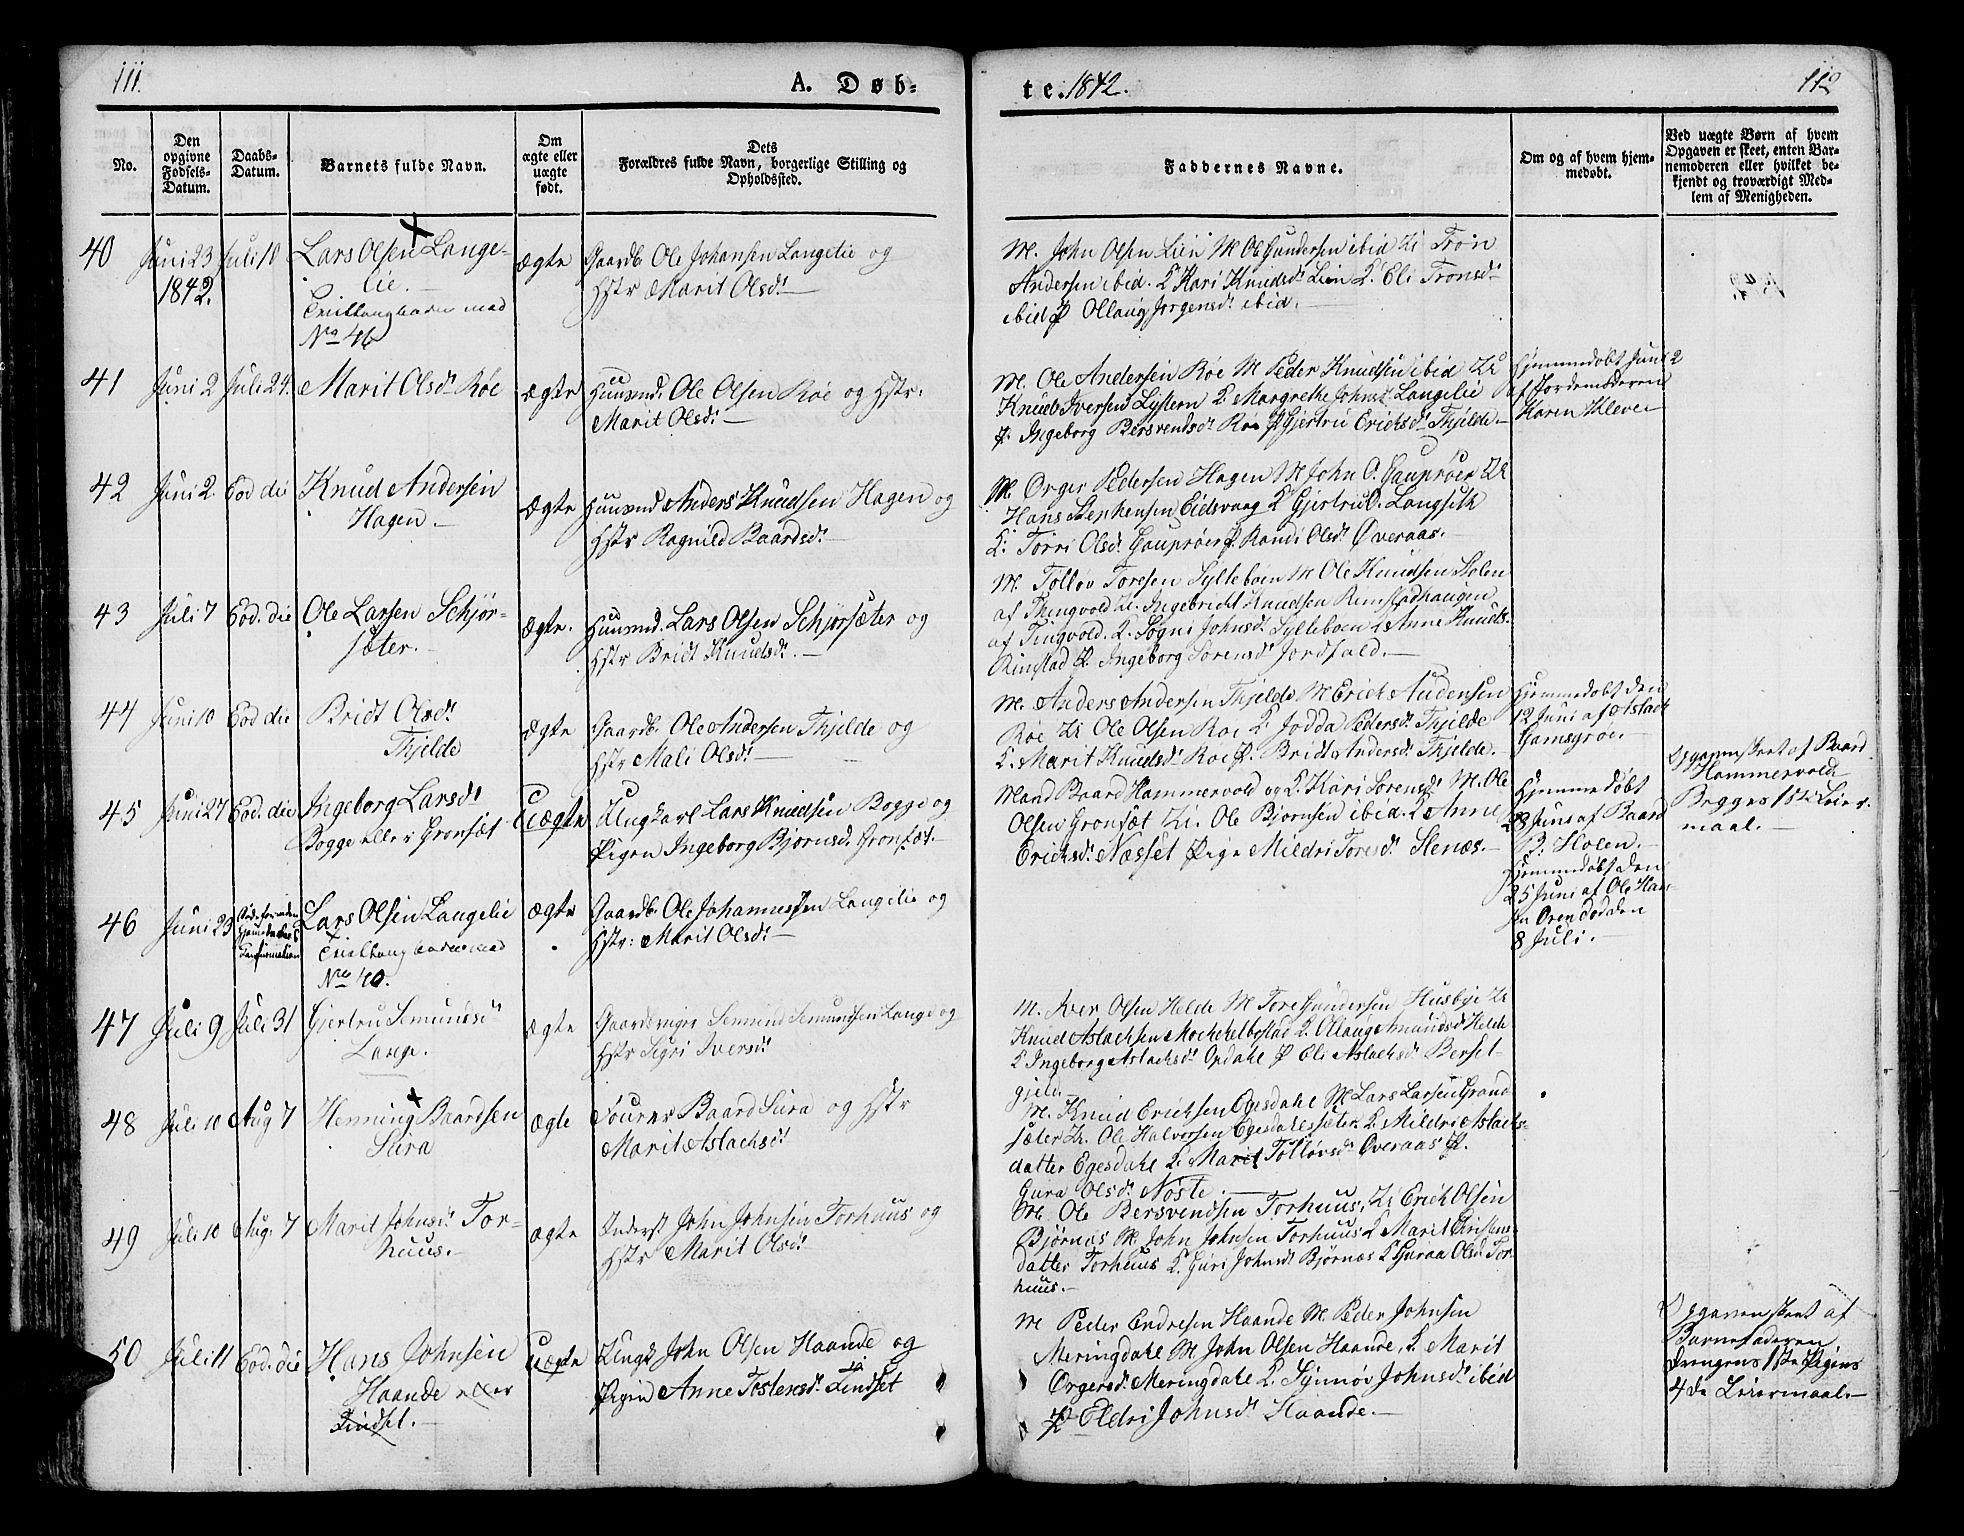 111.
A. Døb-
te. 1842.
112
No.
Den opgivne Fødsels-Datum.
Daabs-Datum.
Barnets fulde Navn.
Om ægte eller uægte født.
Dets Forældres fulde Navn, borgerlige Stilling og Opholdssted.
Faddernes Navne.
Om og af hvem hjem-medøbt.
Ved uægte Børn af hvem Opgaven er skeet, enten Bar-nemoderen eller hvilket be-kjendt og troværdigt Med-lem af Menigheden.
40 Juni 23 Juli 10 Lars Olsen Lange- ægte Gaardb. Ole Johansen Langelie og
1842. lie. Hstr Marit Olsd:
Tvillingbarn med
No 46
M. John Olsen Lien M Ole Gundersen ibid Zi Tron
Andersen ibid. Q Kari Knudsd: Lien Q. Eli Tronsd:
ibid P Ollaug Jorgensd: ibid.
41 Juni 2 Juli 24. Marit Olsd: Røe ægte Huusmd. Ole Olsen Røe og Hstr:
Marit Olsd:
M. Ole Andersen Røe M Peder Knudsen ibid Zi
Knud Iversen Lystern Q. Margrethe Johnsd Langelie
P. Ingeborg Bersvendsd: Røe P Gjertru Ericksd: Thjelde.
Hjemmedøbt Juni 2
af Jordemoderen
Karen Kleve
42 Juni 2. Eod die Knud Andersen ægte Huusmd Anders Knudsen Hagen og
Hagen. Hstr Ragnild Baardsd:
M. Orger Pedersen Hagen M John O. Gauprøer Zi
Hans Stenhensen Eidsvaag Q Gjertru O. Langseth
Q: Torri Olsd: Gauprøer P. Randi Olsd: Øveraas.
43 Juli 7 Eod. die Ole Larsen Schjør- Ægte. Huusmd. Lars Olsen Schjørsæter og
sæter. Hstr Bridt Knudsd:.
M. Tolløv Toresen Sylteboen M Ole Knudsen Stolen
af Thingvold Zi. Ingebricht Knudsen Rimstadhaugen
af Tingvold. Q. Sogni Johnsd: Sylteboen Q Anne Knuds.
Rimstad P. Ingeborg Sorensd: Jordfald.
44 Juni 10 Eod die Bridt Olsd: Ægte Gaardb. Ole Andersen Thjelde og
Thjelde Hstr Mali Olsd:
M. Anders Andersen Thjelde. M Erick Andersen
Røe Zi Ole Olsen Roe Q. Jodda Pedersd: Thjelde
Q. Marit Knudsd: Roe P. Bridt Andersd: Thjelde.
Hjemmedøbt den
12 Juni af Aslach
Gamsgroe.
45 Juni 27 Eod. die Ingeborg Larsd: Uægte Ungkarl Lars Knudsen Bogge og
Bogge eller Gronsæt Pigen Ingeborg Bjørnsd. Gronsæt.
Mand Baard Hammervold og Q. Kari Sorensd: M. Ole
Olsen Gronsæt Zi. Ole Bjornsen ibid. Q Anne
Ericksd: Næsset Pige Mildri Toresd: Stenæs.
Hjemmedøbt
28 Juni af Baard
B. Holen.
Opgaven skeet af Baard
Hammervold
Begges 1ste Leier-
maal.
46 Juni 23 Død forinden Hjemdøbens Confirmation Lars Olsen Langelie ægte Gaardb. Ole Johannesen Langelie og
Tvillingbarn med Hstr: Marit Olsd:
No 40.
Hjemmedøbt den
25 Juni af Ole Han-
sen Oren død den
8 Juli.
47 Juli 9 Juli 31 Gjertru Semundsd: ægte Gaardbruger Semund Semundsen Lange og
Lange. Hstr Sigri Iversd:
M. Iver Olsen Helde M Tore Gundersen Husbye Zi
Knud Aslachsen Mochekelbostad Q. Ollaug Amundsd: Helde
Q Ingeborg Aslachsd: Opdahl P Eli Aslachsd: Berset-
gjeld.
48 Juli 10 Aug 7 Henning Baardsen ægte Sourer Baard Sira og Hstr
Sira Marit Aslachsd:
M. Knud Ericksen Egesdahl M Lars Larsen Grand-
sæter Zi. Ole Halvorsen Egesdalssæter Q. Mildri Aslachs-
datter Egesdahl Q. Marit Tolløvsd: Øveraas P.
Gura Olsd: Nøste.
49 Juli 10 Aug. 7 Marit Johnsd: Tor- ægte Inderst John Johnsen Torhuus og
huus. Hstr Marit Olsd:
M. Ole Bersvendsen Torhuus, Zi Erich Olsen
Bjørnæs M. John Johnsen Torhuus Q Marit Christens-
datter Torhuus Q. Guri Johnsd: Bjørnæs Q Guraa Olsd: Tor-
huus.
50 Juli 11 Eod. die Hans Johnsen Uægte Ungk John Olsen Haande og
Haande eller Pigen Anne Tostensd: Lindset
Lindset.
M Peder Endresen Haande M. Peder Johnsen
Meringdahl M. John Olsen Haande, Q. Marit
Orgersd: Meringdahl Q. Synnøv Johnsd: ibid
P Eldri Johnsd: Haande.
Opgaven skeet af
Barnefaderen
Drengens 1ste Pigens
4de Leiermaal.